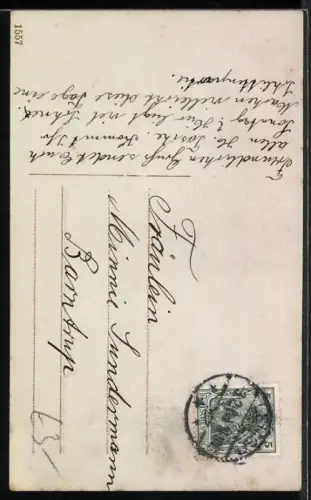 1557
Freundlichen Gruß sendet Euch
allen H. Jaske. Kommt Ihr
Sonntag? Hier liegt viel Schnee.
Machen vielleicht diese Tage eine
Schlittenpartie.
Fräulein
Minnie Sundermann
Barntrup
5